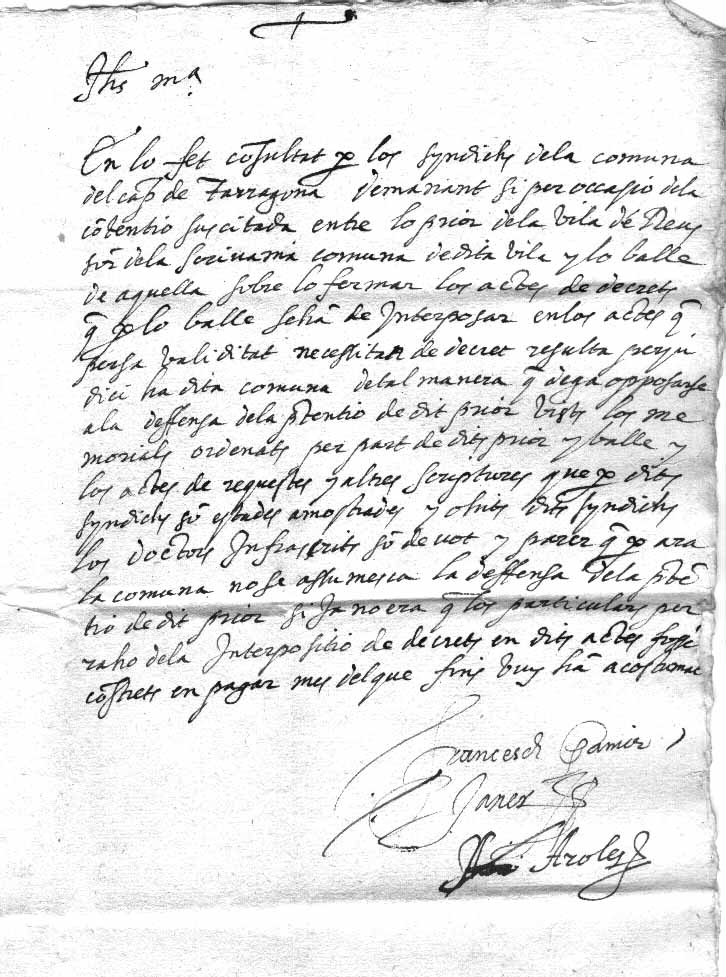 Jhs mª
En lo fet cõsultat p los syndichs dela comuna
del cãp de Tarragona demanant si per occasio dela
cõtentio suscitada entre lo prior dela vila de Reus
sõr dela scrivania comuna dedita vila y lo balle
de aquella sobre lo fermar los actes de decrets
q̃ p lo balle se hã de Interposar en los actes q̃
persa validitat necessitan de decret resulta perju
dici ha dita comuna detal manera q̃ dega opposarse
ala deffensa dela p̃tentio de dit prior vists los me
morials ordenats per part de dits prior y balle y
los actes de requestes y altres scriptures que p dits
syndichs sõ estades amostrades y ohits dits syndichs
los doctors Infrascrits sõ de vot y parer q̃ p ara
la comuna no se assumesca la deffensa dela p̃tẽ
tio de dit prior si Ja no era q̃ los particulars per
raho dela Interpositio de decrets en dits actes fossẽ
cõstrets en pagar mes del que fins vuy hã acostumat
Francesch Gamir
Janer
Aroles